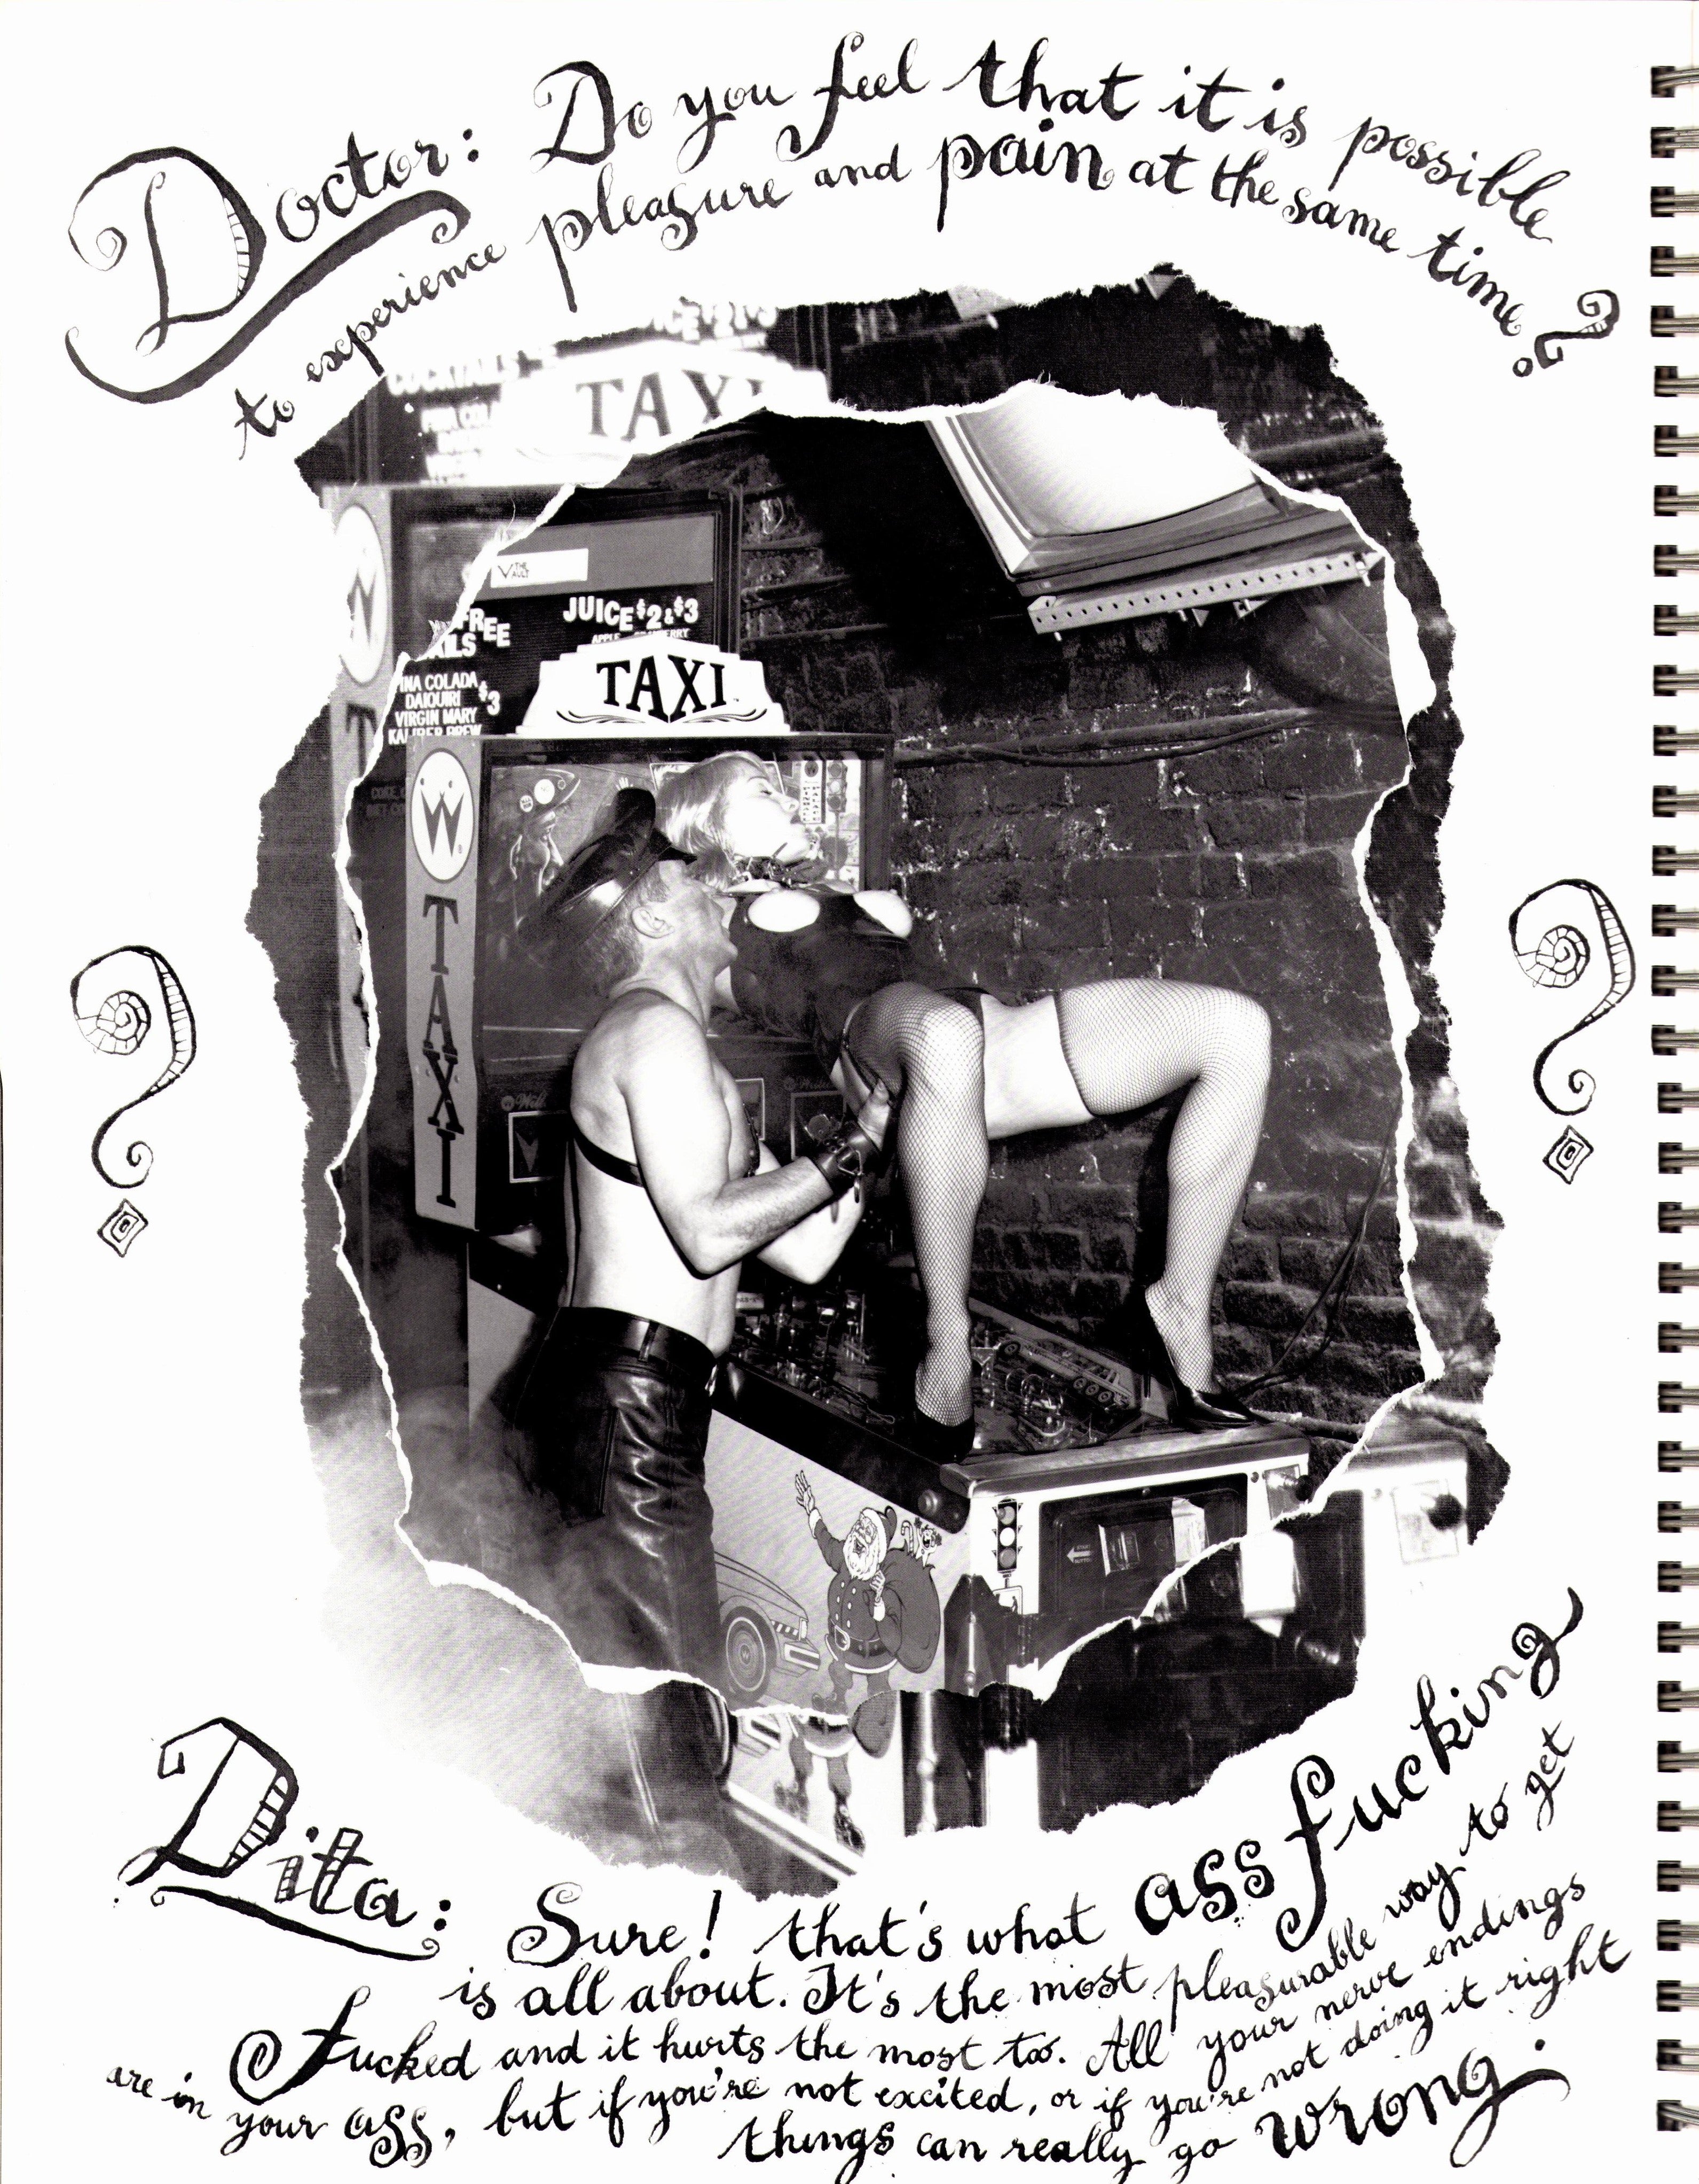 Doctor: Do you feel that it is possible
to experience pleasure and pain at the same time?
TAXI
THE
VAULT
FREE
JUICE $2 & $3
TAXI
INA COLADA
DAIQUIRI
VIRGIN MARY
$3
W
TAXI
Dita: Sure! that's what ass fucking
is all about. It's the most pleasurable way to get
fucked and it hurts the most too. All your nerve endings
are in your ass, but if you're not excited, or if you're not doing it right
things can really go wrong.